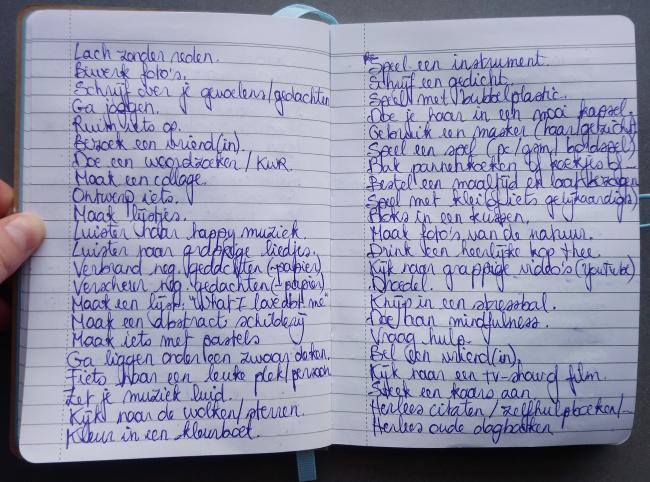 Lach zonder reden.
Bewerk foto's.
Schrijf over je gevoelens/gedachten
Ga joggen.
Ruim iets op.
Bezoek een vriend(in).
Doe een woordzoeker / KWR.
Maak een collage.
Ontwerp iets.
Maak lijstjes.
Luister naar happy muziek.
Luister naar grappige liedjes.
Verbrand neg. gedachten (→papier)
Verscheur neg. gedachten (→papier)
Maak een lijst: "What I love about me"
Maak een abstract schilderij
Maak iets met pastels
Ga liggen onder een zwaar deken.
Fiets naar een leuke plek/persoon
Zet je muziek luid.
Kijk naar de wolken/sterren.
Kleur in een kleurboek.
Speel een instrument.
Schrijf een gedicht.
Speel met bubbelplastic.
Doe je haar in een mooi kapsel.
Gebruik een masker (haar/gezicht)
Speel een spel (pc/gsm/bordspel)
Bak pannenkoeken of koekjes
Bestel een maaltijd en laat bezorgen
Speel met klei (of iets gelijkaardigs)
Boks in een kussen.
Maak foto's van de natuur.
Drink een heerlijke kop thee.
Kijk naar grappige video's (YouTube)
Droedel.
Knijp in een stressbal.
Doe aan mindfulness.
Vraag hulp.
Bel een vriend(in).
Kijk naar een tv-show of film.
Steek een kaars aan
Herlees citaten / zelfhulpboeken/...
Herlees oude dagboeken